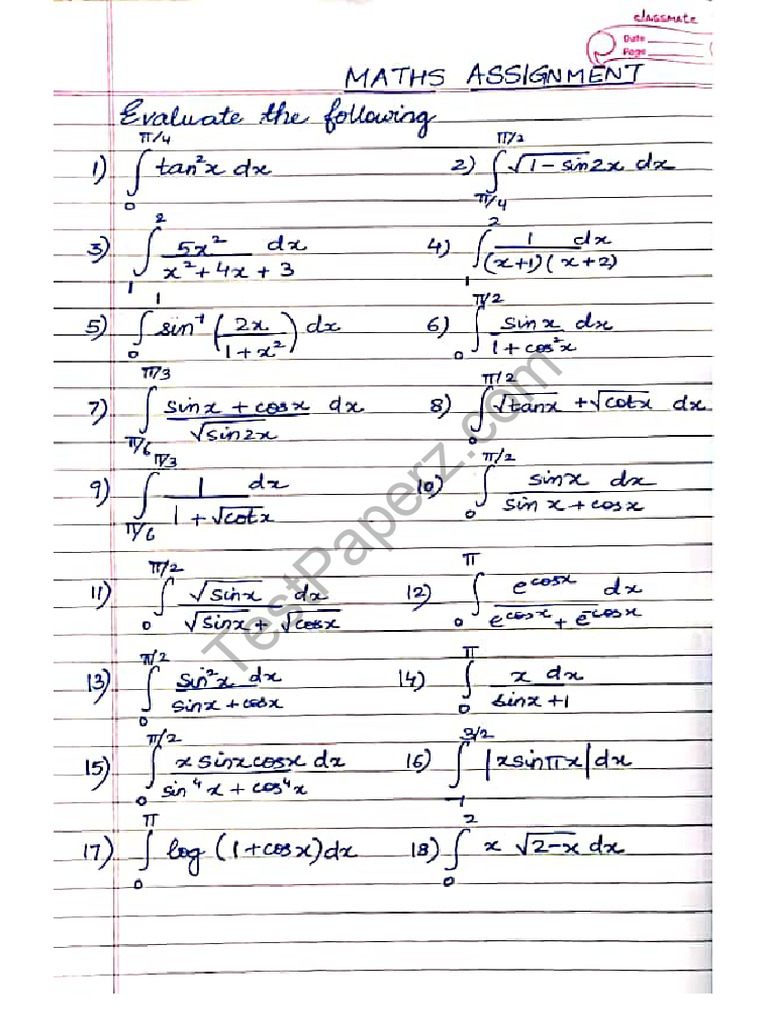 classmate
Date
Page
MATHS ASSIGNMENT
Evaluate the following
1) ∫₀^{π/4} tan²x dx 2) ∫_{π/4}^{π/2} √(1 - sin2x) dx
3) ∫₁² 5x²/(x² + 4x + 3) dx 4) ∫₁² 1/((x+1)(x+2)) dx
5) ∫₀¹ sin⁻¹(2x/(1+x²)) dx 6) ∫₀^{π/2} sinx/(1 + cos²x) dx
7) ∫_{π/6}^{π/3} (sinx + cosx)/√(sin2x) dx 8) ∫₀^{π/2} √tanx + √cotx dx
9) ∫_{π/6}^{π/3} 1/(1 + √cotx) dx 10) ∫₀^{π/2} sinx/(sinx + cosx) dx
11) ∫₀^{π/2} √sinx/(√sinx + √cosx) dx 12) ∫₀^{π} e^{cosx}/(e^{cosx} + e^{-cosx}) dx
13) ∫₀^{π/2} sin²x dx/(sinx + cosx) 14) ∫₀^{π} x dx/(sinx + 1)
15) ∫₀^{π/2} x sinx cosx dx/(sin⁴x + cos⁴x) 16) ∫₋₁^{3/2} |x sinπx| dx
17) ∫₀^{π} log(1 + cosx) dx 18) ∫₀² x √(2-x) dx
TestPaperz.com